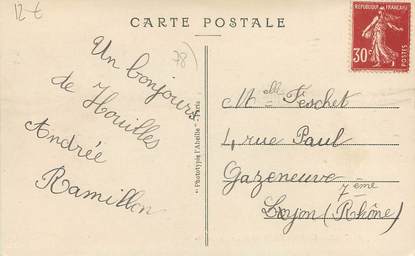 12 €
CARTE POSTALE
RÉPUBLIQUE FRANÇAISE
30c
POSTES
78
Un bonjour
de Houilles
Andrée
Ramillon
"Phototypie l'Abeille" - Paris
Melle Feschet
4 rue Paul
Gazeneuve
7ème
Lyon (Rhône)